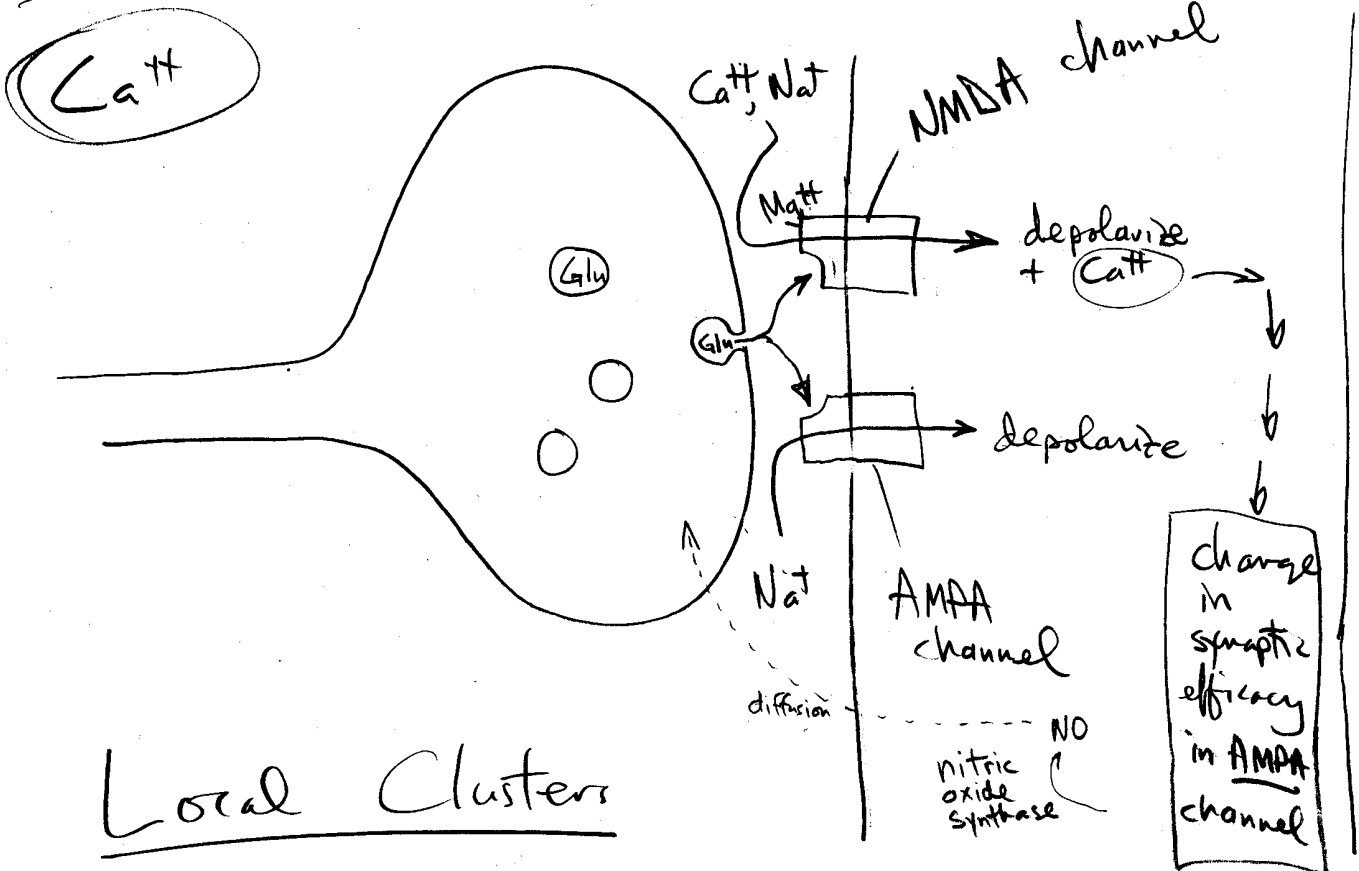 Ca++
Ca++, Na+
NMDA channel
Mg++
depolarize
+ Ca++
Glu
Glu
depolarize
Na+
AMPA
channel
diffusion
NO
nitric
oxide
synthase
change
in
synaptic
efficacy
in AMPA
channel
Local Clusters